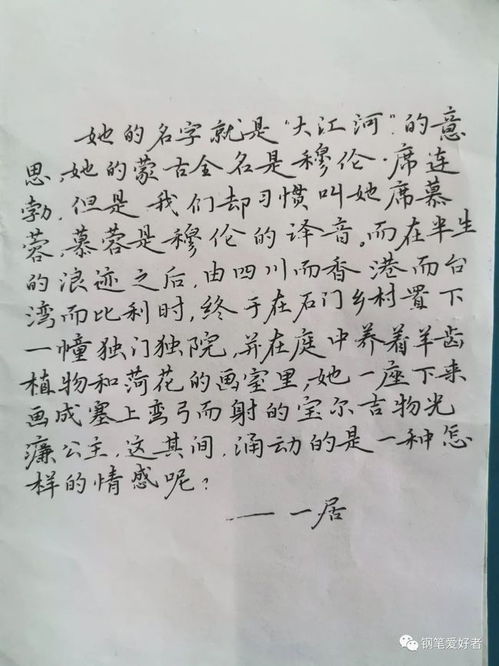 她的名字就是“大江河”的意
思，她的蒙古全名是穆伦·席连
勃，但是，我们却习惯叫她席慕
蓉，慕蓉是穆伦的译音。而在半生
的浪迹之后，由四川而香港而台
湾而比利时，终于在石门乡村置下
一幢独门独院，并在庭中养着羊齿
植物和荷花的画室里，她一座下来
画成塞上弯弓而射的宝尔吉物光
濂公主，这其间，涌动的是一种怎
样的情感呢？
——一居
钢笔爱好者